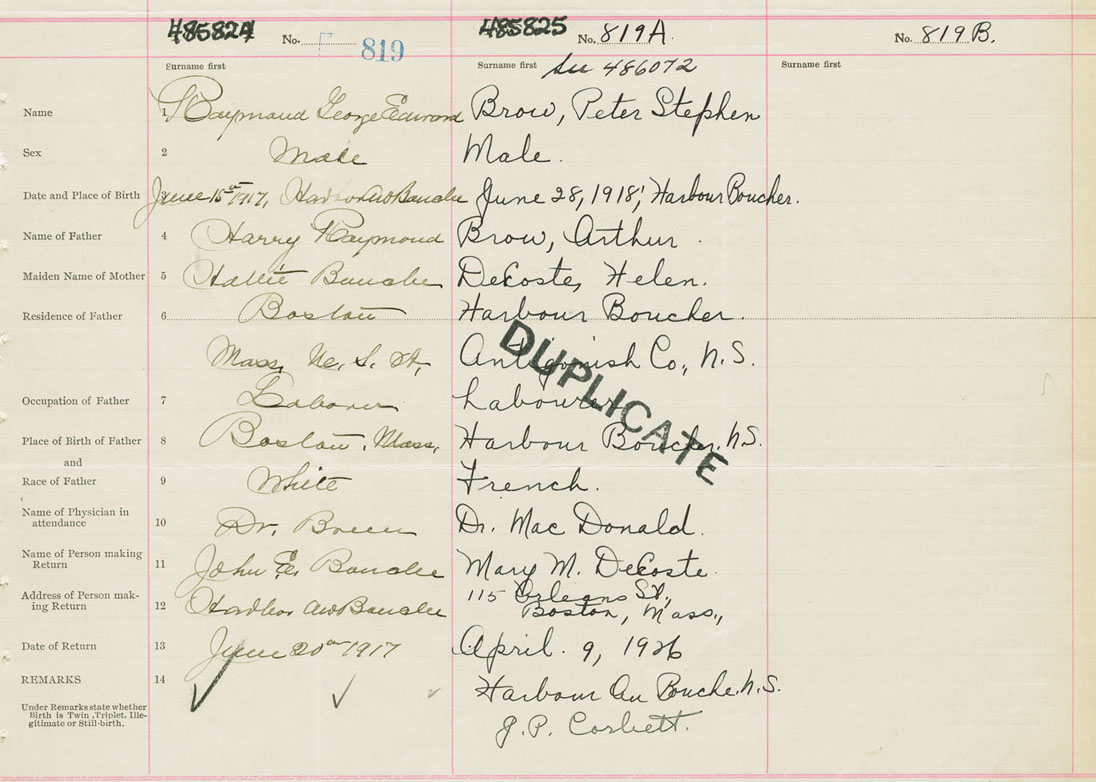 485824 No. 819
485825 No. 819A.
No. 819B.
Surname first
Surname first see 486072
Surname first
Name 1 Raymond George Edward Brow, Peter Stephen
Sex 2 Male Male.
Date and Place of Birth 3 June 15th 1917, Harbor Au Bouche June 28, 1918, Harbour Boucher.
Name of Father 4 Harry Raymond Brow, Arthur.
Maiden Name of Mother 5 Hattie Bouche DeCoste, Helen.
Residence of Father 6 Boston Harbour Boucher.
Mass, Antigonish Co., N.S.
Occupation of Father 7 Laborer Labourer
Place of Birth of Father 8 Boston, Mass, Harbour Boucher, N.S.
and
Race of Father 9 White French.
Name of Physician in
attendance 10 Dr. Dr. MacDonald.
Name of Person making
Return 11 John E. Bouche Mary M. DeCoste
Address of Person mak-
ing Return 12 Harbor au Bouche 115 Orleans St.,
Boston, Mass.,
Date of Return 13 June 20th 1917 April. 9, 1926
REMARKS 14 Harbour Au Bouche. N.S.
Under Remarks state whether
Birth is Twin, Triplet, Ille-
gitimate or Still-birth.
J.P. Corbett.
DUPLICATE